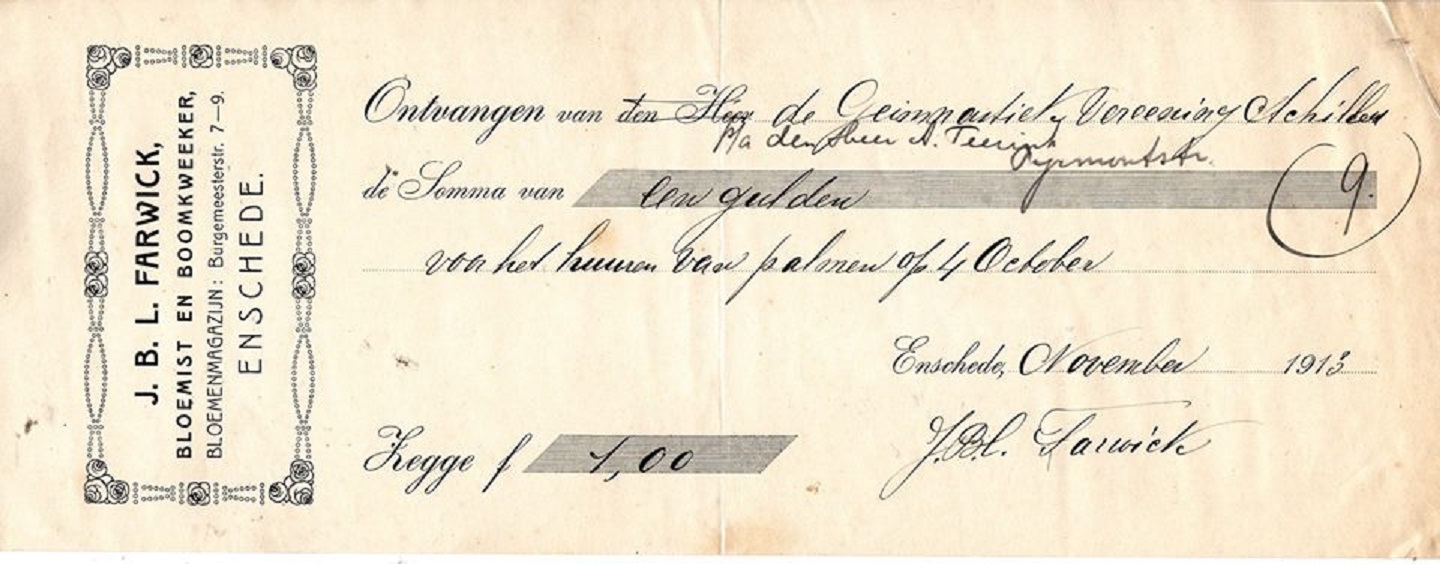 J. B. L. FARWICK,
BLOEMIST EN BOOMKWEEKER,
BLOEMENMAGAZIJN: Burgemeesterstr. 7—9.
ENSCHEDE.
Ontvangen van den Heer de Vereeniging Achilles
p/a den Heer A.
de Somma van een gulden
9.
voor het huuren van palmen op 4 October
Enschede, November 1913
Zegge f 1,00
J.B.L. Farwick